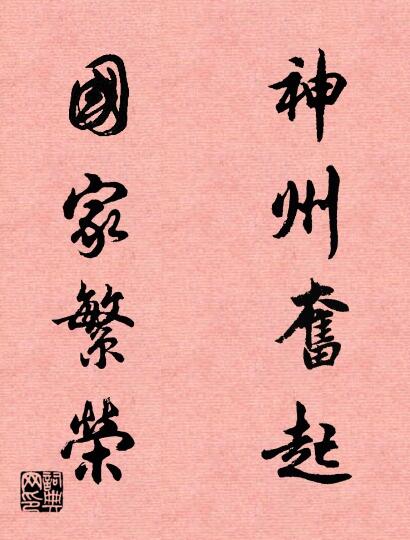 神州奮起
國家繁榮
詞典网印